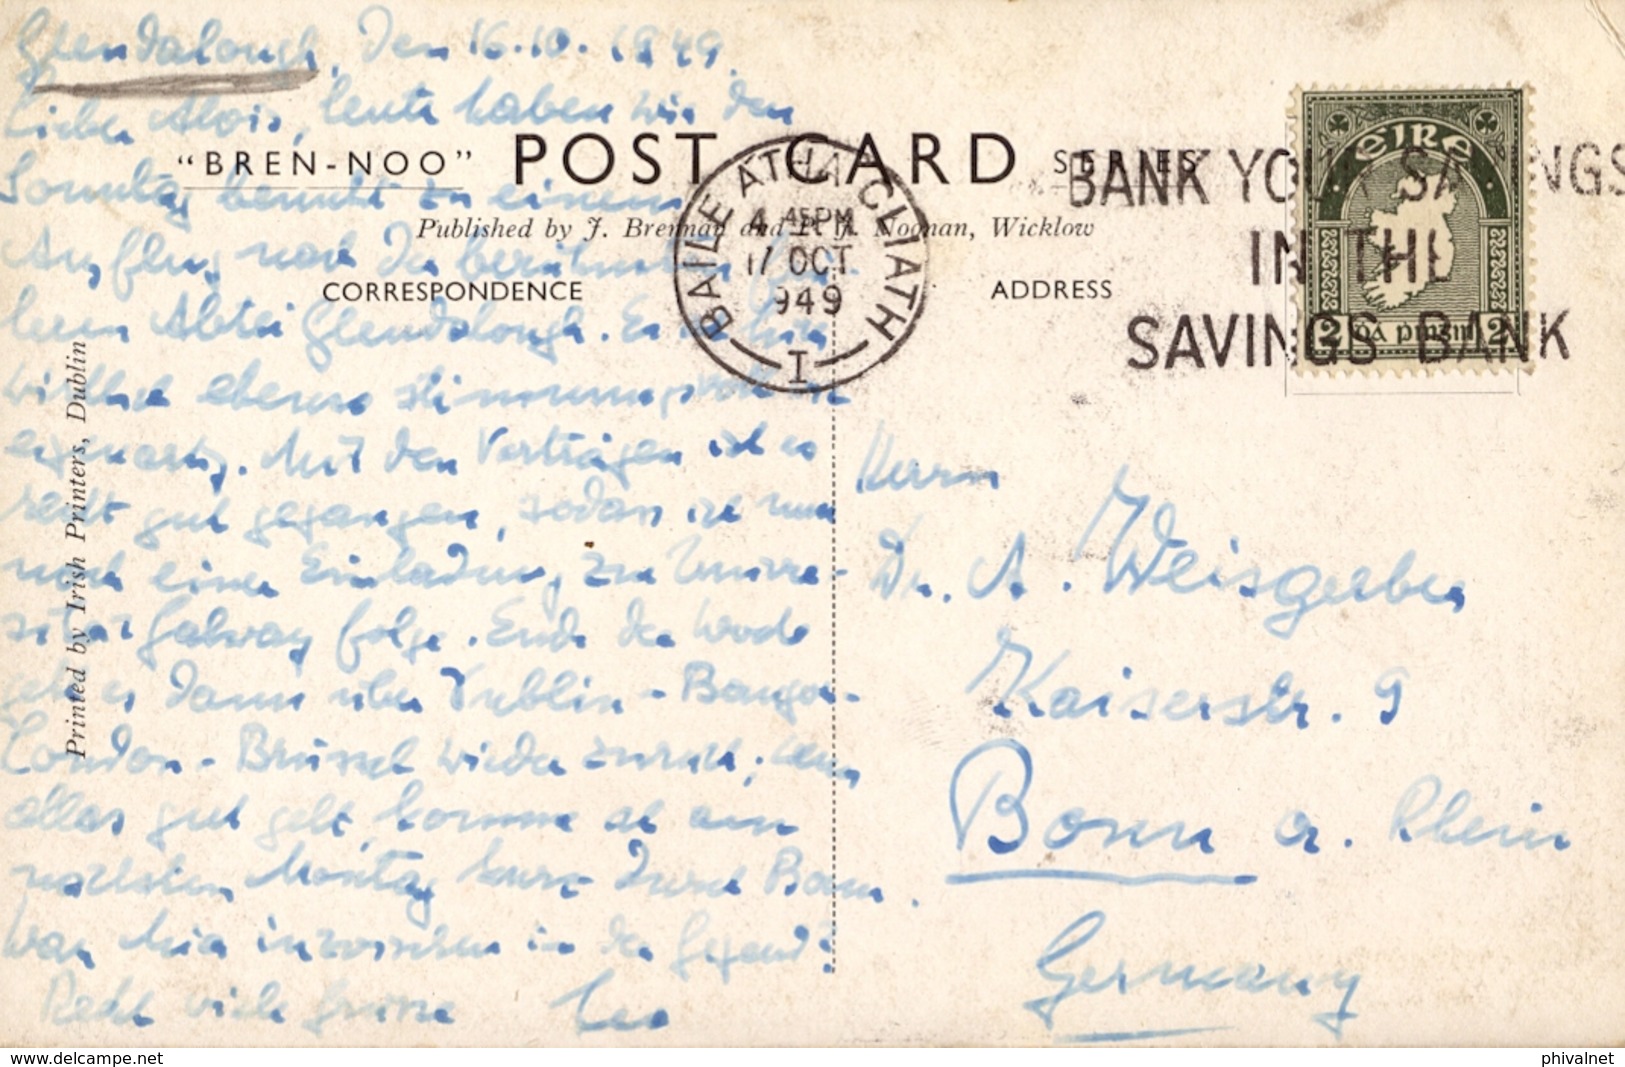 Glendalough, den 16.10.1949.
Lieber Alois, heute haben wir den
Sonntag benutzt zu einem
Ausflug nach der berühmten
Abtei Glendalough. Es ist hier
wirklich ebenso stimmungsvoll
eigenartig. Mit den Vorträgen ist es
recht gut gegangen, sodass ich nun
noch einer Einladung zur Univer-
sität Galway folge. Ende der Woche
geht es dann über Dublin - Bangor -
London - Brüssel wieder zurück; wenn
alles gut geht, komme ich am
nächsten Montag kurz durch Bonn.
War Mia inzwischen in der Gegend?
Recht viele Grüsse Leo
"BREN-NOO" POST CARD SERIES
Published by J. Brennan and P. J. Noonan, Wicklow
CORRESPONDENCE
ADDRESS
Printed by Irish Printers, Dublin
BAILE ÁTHA CLIATH
4 45PM
17 OCT
1949
I
BANK YOUR SAVINGS
IN THE
SAVINGS BANK
EIRE
2 2
Herrn
Dr. A. Weisgerber
Kaiserstr. 9
Bonn a. Rhein
Germany
www.delcampe.net
phivalnet